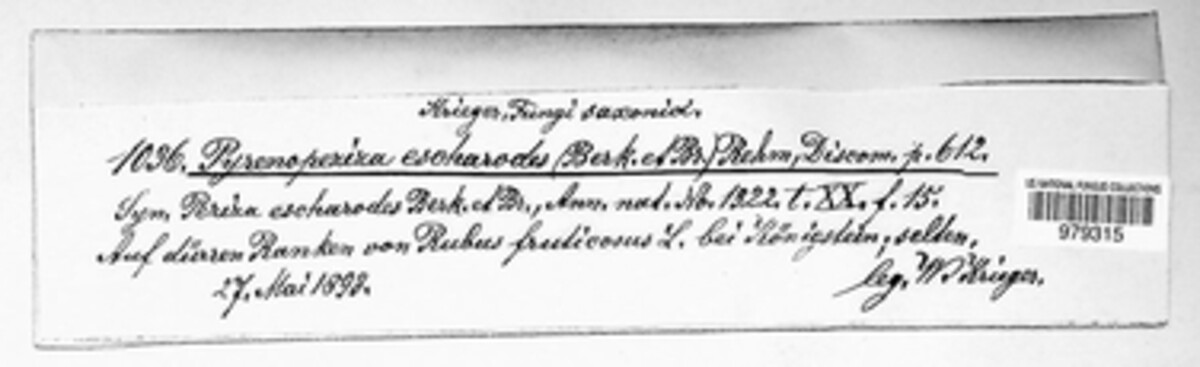 Krieger, Fungi saxonici.
1036. Pyrenopeziza escharodes (Berk. et Br.) Rehm, Discom. p. 612.
Syn. Peziza escharodes Berk. et Br., Ann. nat. No. 1322. t. XX. f. 15.
Auf dürren Ranken von Rubus fruticosus L. bei Königstein, selten,
27. Mai 1893.
leg. W. Krieger.
US NATIONAL FUNGUS COLLECTIONS
979315